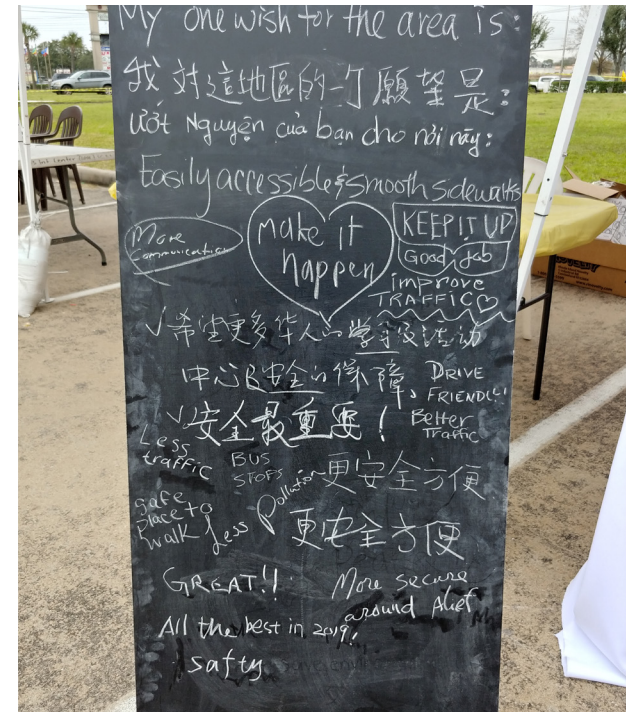 My one wish for the area is:
我對這地區的一个願望是:
Ước Nguyện của bạn cho nơi này:
Easily accessible & smooth sidewalks
More
communication
make it
happen
KEEP IT UP
Good Job
improve
TRAFFIC
✓ 希望更多华人的学校及活动
中心及安全的保障。
DRIVE
FRIENDLY!
✓ 安全最重要!
Better
Traffic
Less
traffic
BUS
STOPS
更安全方便
Safe
place to
walk
Less Pollution
更安全方便
GREAT!!
More secure
around Alief
All the best in 2019!
safty